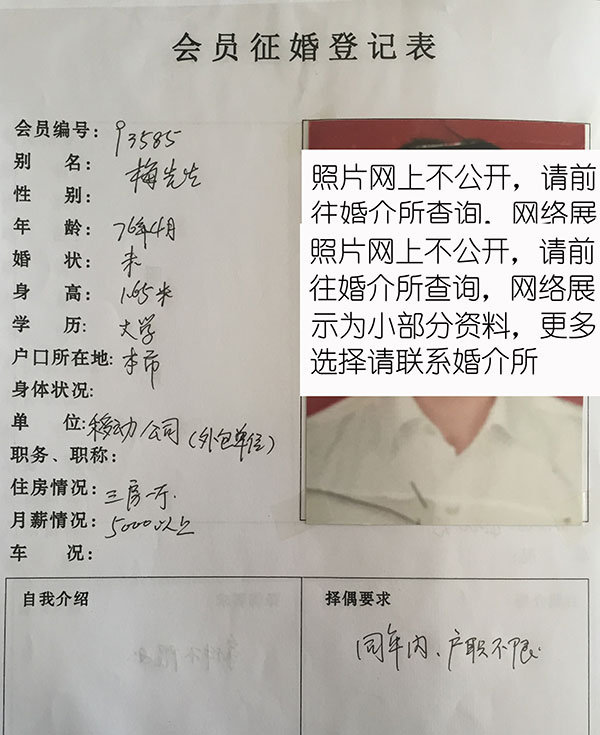 会员征婚登记表
会员编号：93585
别 名：梅先生
性 别：
年 龄：76年4月
婚 状：未
身 高：1.65米
学 历：大学
户口所在地：本市
身体状况：
单 位：移动公司（外包单位）
职务、职称：
住房情况：三房一厅.
月薪情况：5000以上
车 况：
照片网上不公开，请前
往婚介所查询，网络展
照片网上不公开，请前
往婚介所查询，网络展
示为小部分资料，更多
选择请联系婚介所
自我介绍
择偶要求
同年内、户职不限.